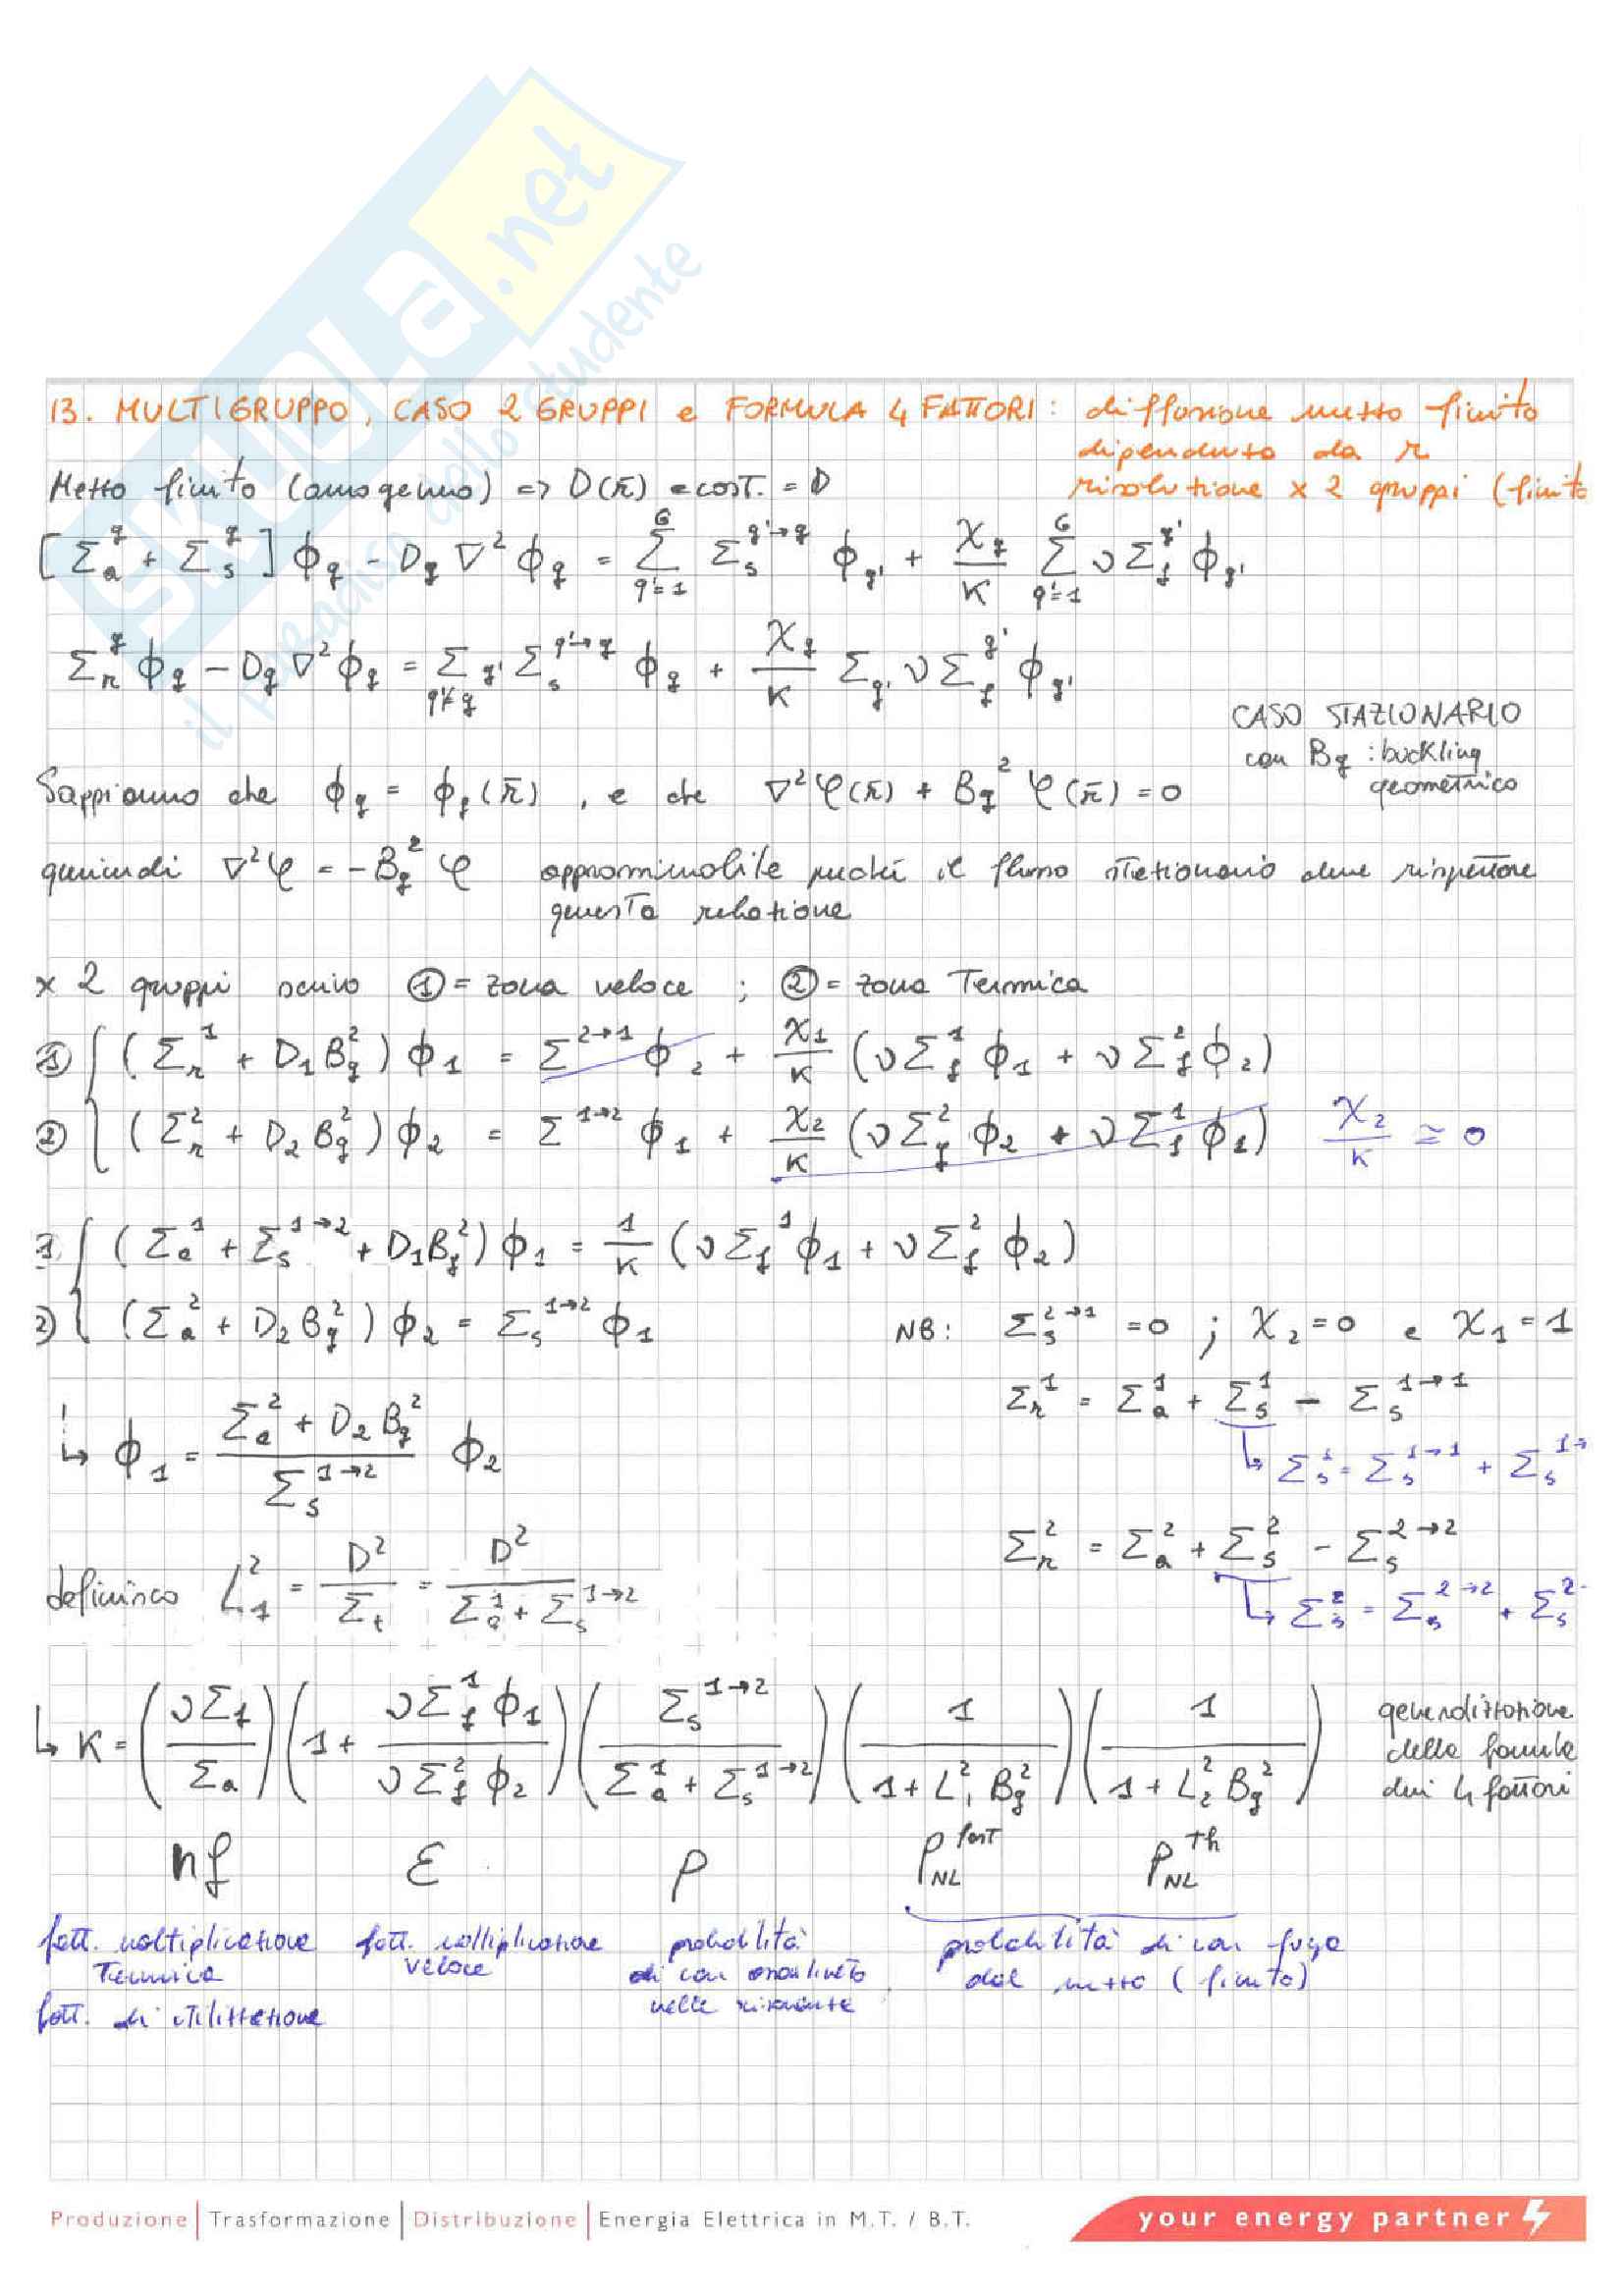 SKUOLA.net
il paradiso dello studente
13. MULTIGRUPPO, CASO 2 GRUPPI e FORMULA 4 FATTORI: diffusione mezzo finito
dipendenza da r
risolutione x 2 gruppi (finito
Mezzo finito (omogeneo) => D(r̄) = cost. = D
[Σ_a^g + Σ_s^g] ϕ_g - D_g ∇² ϕ_g = Σ_{g'=1}^G Σ_s^{g'→g} ϕ_g' + χ_g/K Σ_{g'=1}^G νΣ_f^{g'} ϕ_g'
Σ_r^g ϕ_g - D_g ∇² ϕ_g = Σ_{g'≠g} g' Σ_s^{g'→g} ϕ_g + χ_g/K Σ_g' νΣ_f^{g'} ϕ_g'
CASO STAZIONARIO
con B_g : buckling
geometrico
Sappiamo che ϕ_g = ϕ_g(r̄) , e che ∇²φ(r̄) + B_g² φ(r̄) = 0
quindi ∇²φ = -B_g² φ approssimabile perché il flusso stazionario deve rispettare
questa relazione
x 2 gruppi scrivo ① = zona veloce ; ② = zona Termica
① { (Σ_r^1 + D_1 B_g²) ϕ_1 = Σ^{2→1} ϕ_2 + χ_1/K (νΣ_f^1 ϕ_1 + νΣ_f^2 ϕ_2)
② { (Σ_r^2 + D_2 B_g²) ϕ_2 = Σ^{1→2} ϕ_1 + χ_2/K (νΣ_f^2 ϕ_2 + νΣ_f^1 ϕ_1) χ_2/K ≃ 0
1) { (Σ_a^1 + Σ_s^{1→2} + D_1 B_g²) ϕ_1 = 1/K (νΣ_f^1 ϕ_1 + νΣ_f^2 ϕ_2)
2) { (Σ_a^2 + D_2 B_g²) ϕ_2 = Σ_s^{1→2} ϕ_1 NB: Σ_s^{2→1} = 0 ; χ_2 = 0 e χ_1 = 1
Σ_r^1 = Σ_a^1 + Σ_s^1 - Σ_s^{1→1}
↳ Σ_s^1 = Σ_s^{1→1} + Σ_s^{1→
↳ ϕ_1 = (Σ_a^2 + D_2 B_g²)/Σ_s^{1→2} ϕ_2
Σ_r^2 = Σ_a^2 + Σ_s^2 - Σ_s^{2→2}
↳ Σ_s^2 = Σ_s^{2→2} + Σ_s^{2-
definisco L_1² = D²/Σ_t = D²/(Σ_a^1 + Σ_s^{1→2})
↳ K = (νΣ_f/Σ_a)(1 + νΣ_f^1 ϕ_1/νΣ_f^2 ϕ_2)(Σ_s^{1→2}/(Σ_a^1 + Σ_s^{1→2}))(1/(1 + L_1² B_g²))(1/(1 + L_2² B_g²)) generalizzazione
della formula
dei 4 fattori
ηf ε p P_NL^fast P_NL^th
fatt. moltiplicazione
Termica
fatt. di utilizzazione
fatt. moltiplicazione
veloce
probabilità
di non assorbimento
nelle risonanze
probabilità di non fuga
dal mezzo (finito)
Produzione | Trasformazione | Distribuzione | Energia Elettrica in M.T. / B.T.
your energy partner